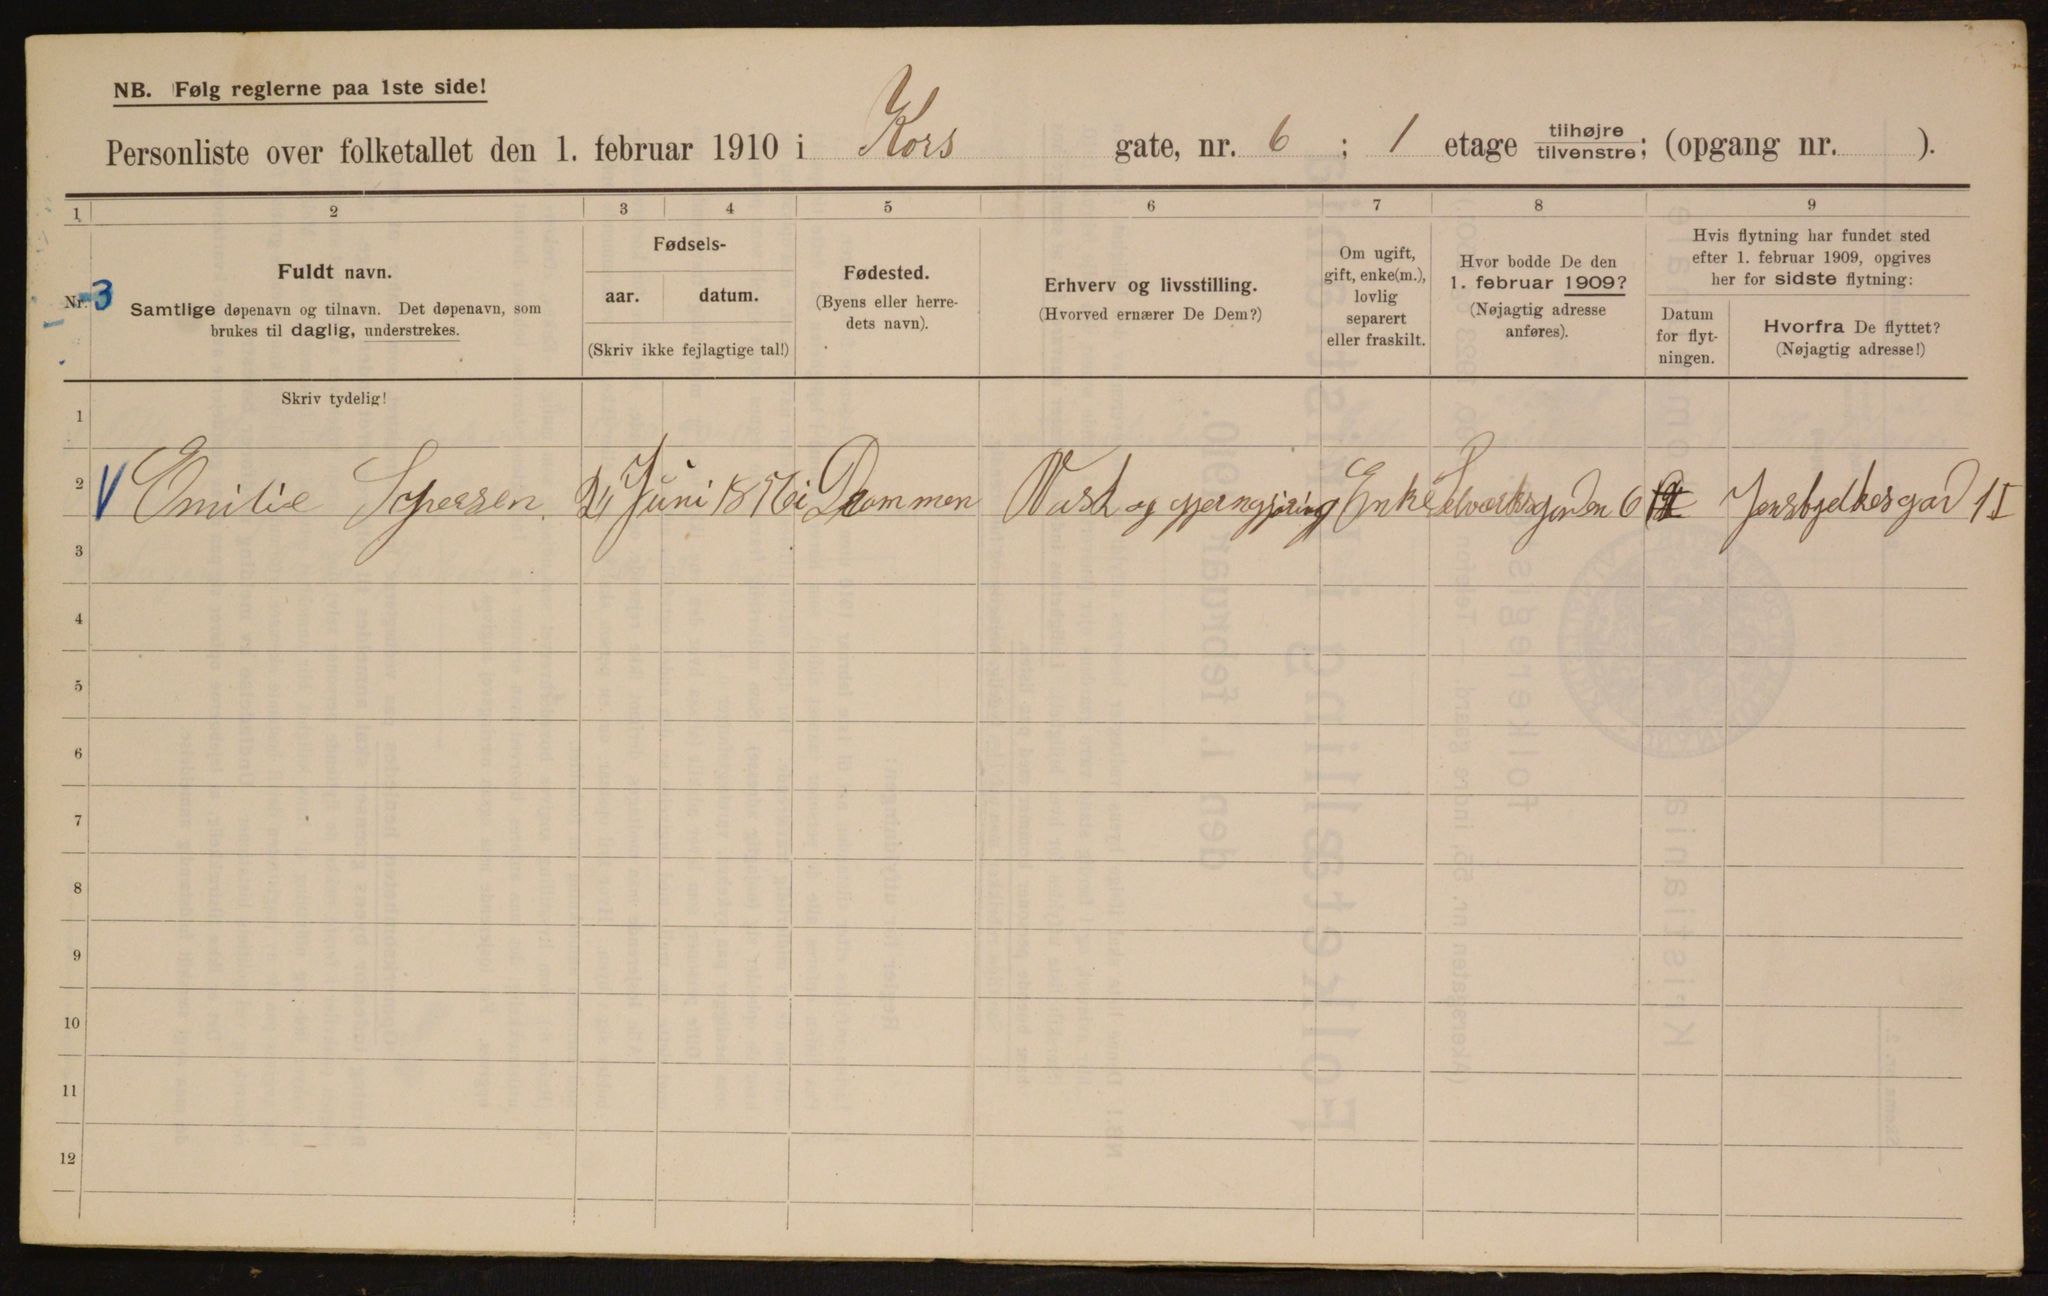 NB. Følg reglerne paa 1ste side!
Personliste over folketallet den 1. februar 1910 i Kors gate, nr. 6 ; 1 etage tilhøjre tilvenstre; (opgang nr. ).
1 2 3 4 5 6 7 8 9
Nr. 3
Fuldt navn.
Samtlige døpenavn og tilnavn. Det døpenavn, som
brukes til daglig, understrekes.
Fødsels-
aar. datum.
(Skriv ikke fejlagtige tal!)
Fødested.
(Byens eller herre-
dets navn).
Erhverv og livsstilling.
(Hvorved ernærer De Dem?)
Om ugift,
gift, enke(m.),
lovlig
separert
eller fraskilt.
Hvor bodde De den
1. februar 1909?
(Nøjagtig adresse
anføres).
Hvis flytning har fundet sted
efter 1. februar 1909, opgives
her for sidste flytning:
Datum
for flyt-
ningen.
Hvorfra De flyttet?
(Nøjagtig adresse!)
Skriv tydelig!
1
2 V Emilie Juni Drammen Vask og gjerngjøring Enke 6 Jensbjelkesgad
3
4
5
6
7
8
9
10
11
12